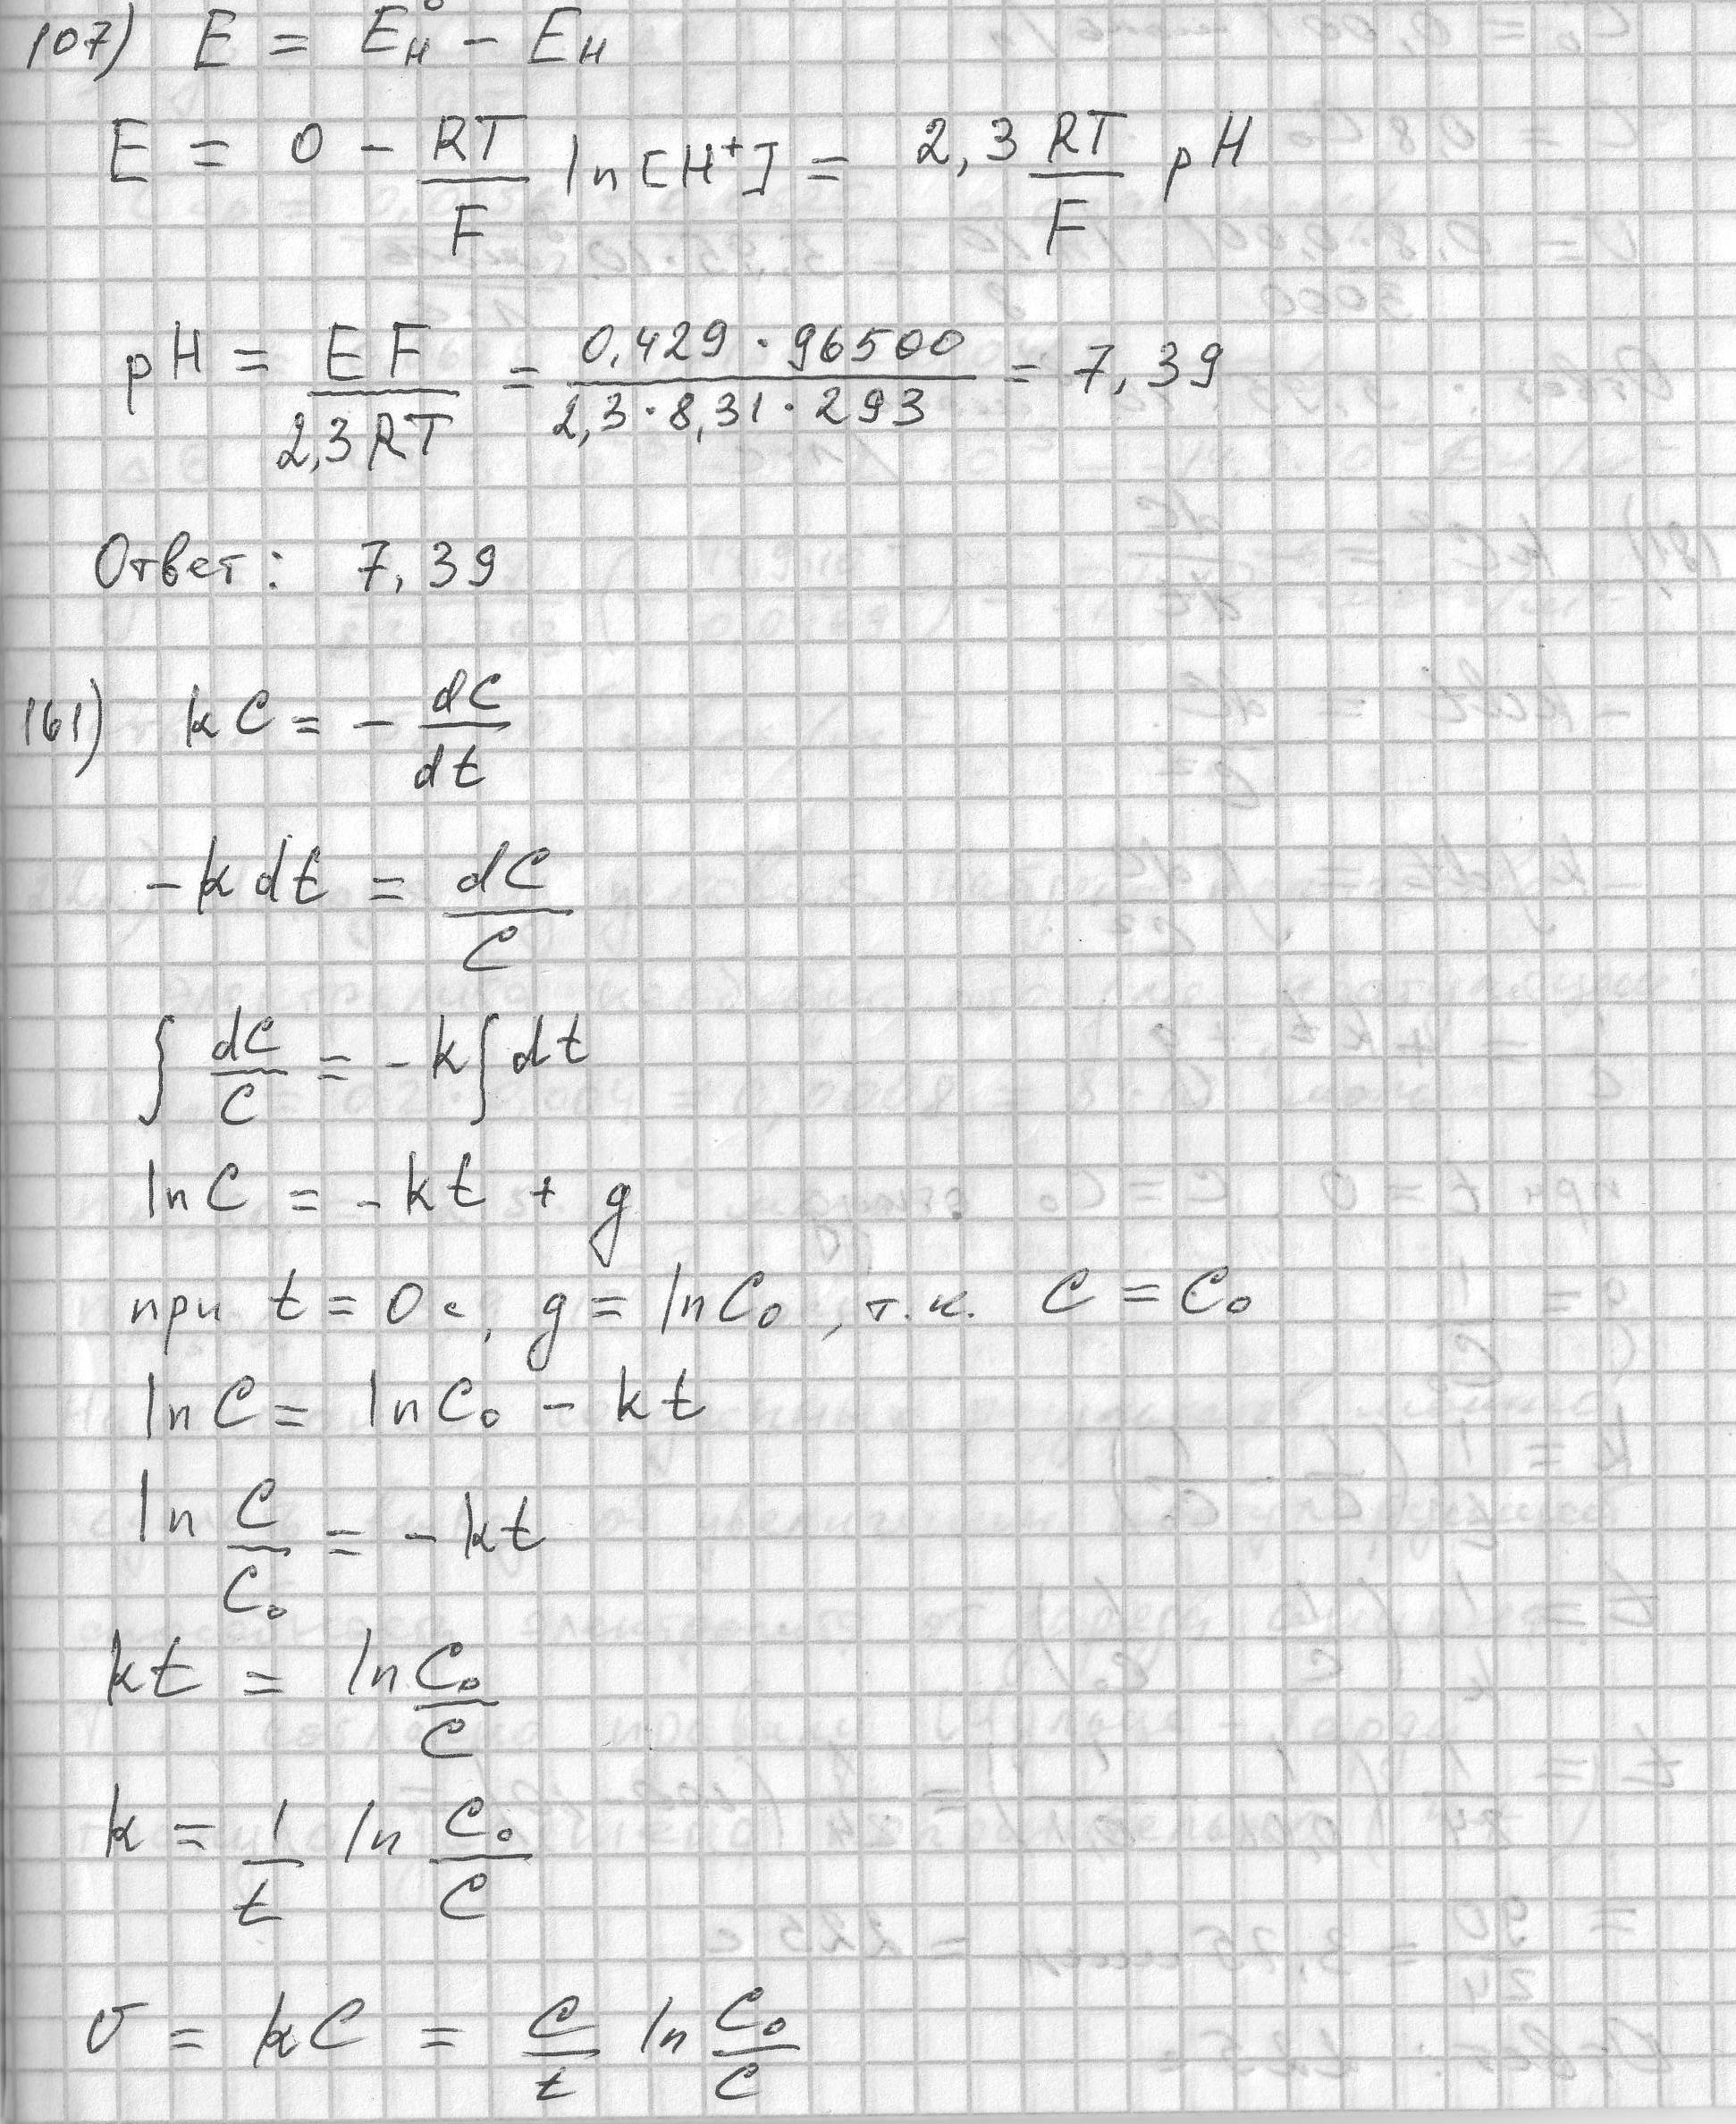 107) E = E°н - Eн
E = 0 - RT/F ln[H⁺] = 2,3 RT/F pH
pH = EF/2,3RT = 0,429 · 96500/2,3 · 8,31 · 293 = 7,39
Ответ: 7,39
161) kC = - dC/dt
-k dt = dC/C
∫ dC/C = -k∫dt
lnC = -kt + g
при t = 0 с, g = lnC₀, т.к. C = C₀
lnC = lnC₀ - kt
ln C/C₀ = -kt
kt = ln C₀/C
k = 1/t ln C₀/C
υ = kC = C/t ln C₀/C